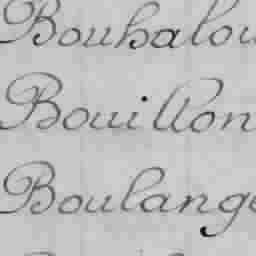 Bouhalou
Bouillon
Boulange